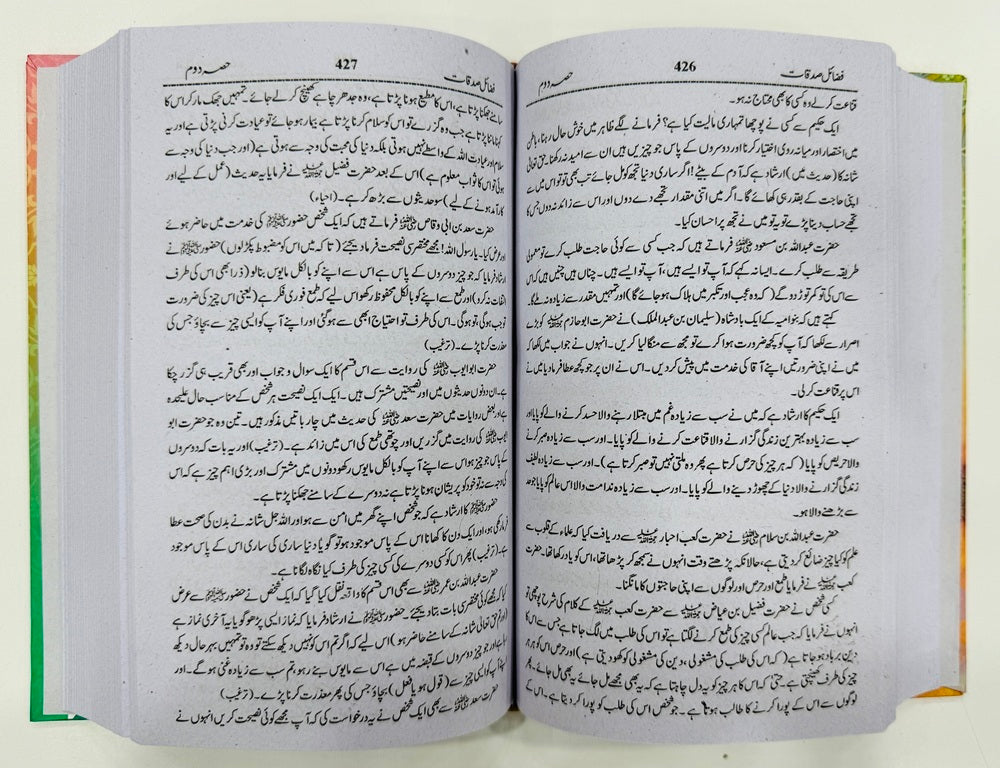 فضائل صدقات 426 حصہ دوم
قناعت کرلے وہ کسی کا بھی محتاج نہ ہو۔
ایک حکیم سے کسی نے پوچھا تمہاری مالیت کیا ہے؟ فرمانے لگے ظاہر میں خوش حال رہنا، باطن
میں اختصار اور میانہ روی اختیار کرنا اور دوسروں کے پاس جو چیزیں ہیں ان سے امید نہ رکھنا۔ حق تعالیٰ
شانہ کا (حدیث میں) ارشاد ہے کہ آدم کے بیٹے! اگر ساری دنیا تجھ کو مل جائے تب بھی تو تو اس میں سے
اپنی حاجت کے بقدر ہی کھائے گا۔ اگر میں اتنی مقدار تجھے دے دوں اور اس سے زائد نہ دوں جس کا
تجھے حساب دینا پڑے تو یہ تو میں نے تجھ پر احسان کیا۔
حضرت عبداللہ بن مسعود رضی اللہ عنہ فرماتے ہیں کہ جب کسی سے کوئی حاجت طلب کرے تو معمولی
طریقہ سے طلب کرے۔ ایسا نہ کہے کہ آپ تو ایسے ہیں، آپ تو ایسے ہیں۔ چناں ہیں چنیں ہیں کہ اس
سے اس کی تو کمر توڑ دو گے (کہ وہ عجب اور تکبر میں ہلاک ہو جائے گا) اور تمہیں مقدر سے زیادہ نہ ملے گا۔
کہتے ہیں کہ بنو امیہ کے ایک بادشاہ (سلیمان بن عبدالملک) نے حضرت ابو حازم کو بڑے
اصرار سے لکھا کہ آپ کو کچھ ضرورت ہوا کرے تو مجھ سے منگا لیا کریں۔ انہوں نے جواب میں لکھا کہ
میں نے اپنی ضرورتیں اپنے آقا کی خدمت میں پیش کر دیں۔ اس نے ان پر جو کچھ عطا فرما دیا میں نے
اس پر قناعت کر لی۔
ایک حکیم کا ارشاد ہے کہ میں نے سب سے زیادہ غم میں مبتلا رہنے والا حسد کرنے والے کو پایا اور
سب سے زیادہ بہترین زندگی گزارنے والا قناعت کرنے والے کو پایا۔ اور سب سے زیادہ صبر کرنے
والا حریص کو پایا (کہ ہر چیز کی حرص کرتا ہے پھر وہ ملتی نہیں تو صبر کرتا ہے)۔ اور سب سے زیادہ لطیف
زندگی گزارنے والا دنیا کے چھوڑ دینے والے کو پایا۔ اور سب سے زیادہ ندامت والا اس عالم کو پایا جو حد
سے بڑھنے والا ہو۔
حضرت عبداللہ بن سلام رضی اللہ عنہ نے حضرت کعب احبار سے دریافت کیا کہ علماء کے قلوب سے
علم کو کیا چیز ضائع کر دیتی ہے، حالانکہ پڑھتے وقت انہوں نے سمجھ کر پڑھا تھا، اس کو یاد رکھا تھا۔ حضرت
کعب نے فرمایا طمع اور حرص اور لوگوں سے اپنی حاجتوں کا مانگنا۔
کسی شخص نے حضرت فضیل بن عیاض سے حضرت کعب کے کلام کی شرح پوچھی تو
انہوں نے فرمایا کہ جب عالم کسی چیز کی طمع کرنے لگتا ہے تو اس کی طلب میں لگ جاتا ہے جس سے اس کا
دین برباد ہو جاتا ہے (کہ اس کی طلب کی مشغولی، دین کی مشغولی کو کھو دیتی ہے) اور حرص اس کو ہر ہر
چیز کی طرف کھینچتی ہے۔ حتیٰ کہ اس کا ہر چیز کو یہ دل چاہتا ہے کہ یہ بھی مجھے مل جائے، یہ بھی مل جائے۔ پھر
لوگوں سے اس کے پورا کرنے کا طالب ہوتا ہے۔ جو شخص اس کی طلب کو پورا کر دیتا ہے۔ اس کے
فضائل صدقات 427 حصہ دوم
سامنے جھکنا پڑتا ہے، اس کا مطیع ہونا پڑتا ہے، وہ جدھر چاہے کھینچ کر لے جائے۔ تمہیں جھک مار کر اس کا
کہنا ماننا پڑتا ہے جب وہ گزرے تو اس کو سلام کرنا پڑتا ہے بیمار ہو جائے تو عیادت کرنی پڑتی ہے اور یہ
سلام اور عیادت اللہ کے واسطے نہیں ہوتی بلکہ دنیا کی محبت کی وجہ سے ہوتی ہے (اور جب دنیا کی وجہ سے
ہوئی تو اس کا ثواب معلوم ہے) اس کے بعد حضرت فضیل نے فرمایا یہ حدیث (عمل کے لیے اور
کارآمد ہونے کے لیے) سو حدیثوں سے بڑھ کر ہے۔ (احیاء)
حضرت سعد بن ابی وقاص رضی اللہ عنہ فرماتے ہیں کہ ایک شخص حضور ﷺ کی خدمت میں حاضر ہوئے
اور عرض کیا۔ یا رسول اللہ! مجھے مختصر سی نصیحت فرما دیجئے (تاکہ میں اس کو مضبوط پکڑ لوں) حضور ﷺ نے
ارشاد فرمایا کہ جو چیز دوسروں کے پاس ہے اس سے اپنے کو بالکل مایوس بنا لو (ذرا بھی اس کی طرف
التفات نہ کرو) اور طمع سے اپنے کو بالکل محفوظ رکھو اس لیے کہ طمع فوری فقر ہے (یعنی اس چیز کی ضرورت
تو جب ہوگی، تو ہوگی۔ اس کی طرف تو احتیاج ابھی سے ہو گئی اور اپنے آپ کو ایسی چیز سے بچاؤ جس کی
معذرت کرنا پڑے۔ (ترغیب)
حضرت ابوایوب رضی اللہ عنہ کی روایت سے اس قسم کا ایک سوال و جواب اور بھی قریب ہی گزر چکا
ہے۔ ان دونوں حدیثوں میں اور نصیحتیں مشترک ہیں۔ ایک ایک نصیحت ہر شخص کے مناسب حال علیحدہ
ہے اور بعض روایات میں حضرت سعد رضی اللہ عنہ کی حدیث میں چار باتیں مذکور ہیں۔ تین وہ جو حضرت ابو
ایوب رضی اللہ عنہ کی روایت میں گزریں اور چوتھی طمع کی اس میں زائد ہے۔ (ترغیب) اور یہ بات کہ دوسروں
کے پاس جو چیز ہو اس سے اپنے آپ کو بالکل مایوس رکھو دونوں میں مشترک اور بڑی اہم چیز ہے کہ اس
کی وجہ سے نہ تو خود کو پریشان ہونا پڑتا ہے نہ دوسرے کے سامنے جھکنا پڑتا ہے۔
حضور ﷺ کا ارشاد ہے کہ جو شخص اپنے گھر میں امن سے ہو اور اللہ جل شانہ نے بدن کی صحت عطا
فرما رکھی ہو، اور ایک دن کا کھانا اس کے پاس موجود ہو تو گویا دنیا ساری کی ساری اس کے پاس موجود
ہے۔ (ترغیب) پھر اس کو کسی دوسرے کی کسی چیز کی طرف کیا نگاہ لگانا ہے۔
حضرت عبداللہ بن عمر رضی اللہ عنہ سے بھی اس قسم کا واقعہ نقل کیا گیا کہ ایک شخص نے حضور ﷺ سے عرض
کیا کہ مجھے کوئی مختصر سی بات بتا دیجئے۔ حضور ﷺ نے ارشاد فرمایا کہ نماز ایسی پڑھو گویا یہ آخری نماز ہے
(اور تم حق تعالیٰ شانہ کے سامنے حاضر ہو) اس لیے کہ اگر تم اس کو نہیں دیکھ سکتے تو وہ تو تمہیں بہر حال دیکھ
رہا ہے اور جو چیز دوسروں کے قبضہ میں ہے اس سے مایوس بنے رہو، تم سب سے زیادہ غنی ہو گے۔ اور
اپنے آپ کو ایسی چیز سے (قول ہو یا فعل) بچاؤ جس کی پھر معذرت کرنا پڑے۔ (ترغیب)
حضرت سعد رضی اللہ عنہ سے بھی ایک شخص نے یہ درخواست کی کہ آپ مجھے کوئی نصیحت کریں انہوں نے